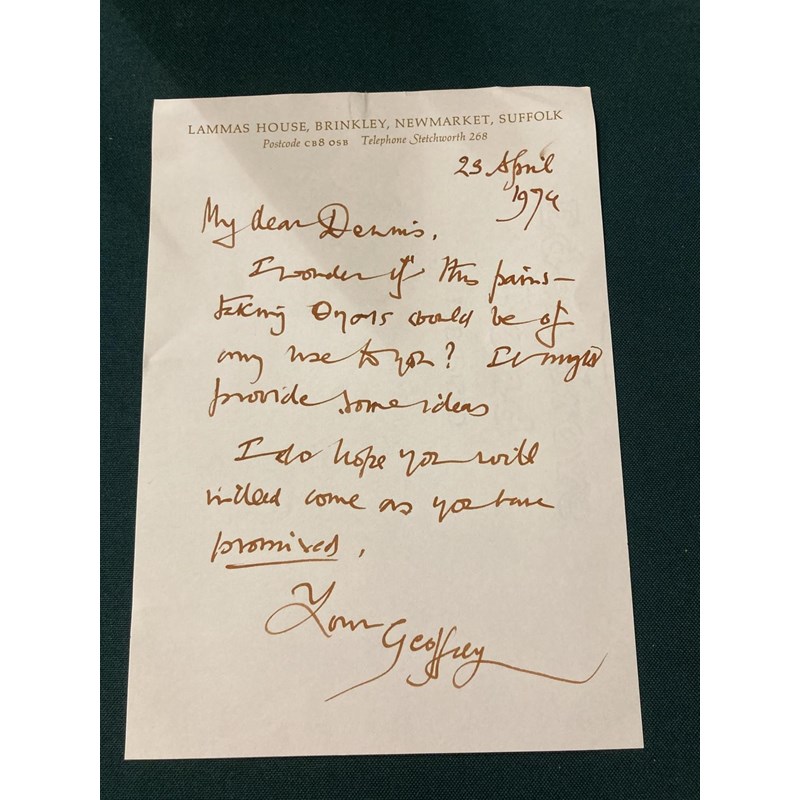 LAMMAS HOUSE, BRINKLEY, NEWMARKET, SUFFOLK
Postcode CB8 0SB Telephone Stetchworth 268
23 April
1974
My dear Dennis,
I wonder if this pains-
taking would be of
any use to you? It might
provide some ideas
I do hope you will
indeed come as you have
promised,
Your
Geoffrey